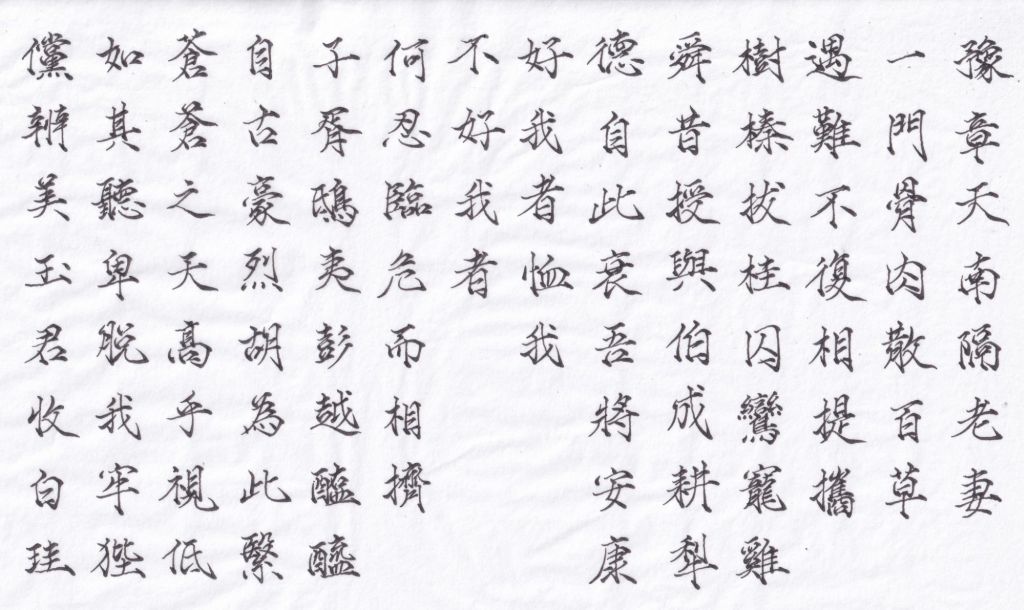 豫章天南隔老妻
一門骨肉散百草
遇難不復相提攜
樹榛拔桂囚鸞寵雞
舜昔授與伯成耕犁
德自此衰吾將安康
好我者恤我
不好我者
何忍臨危而相擠
子胥鴟夷彭越醢醢
自古豪烈胡為此繄
蒼蒼之天高乎視低
如其聽卑脫我牢狴
儻辨美玉君收白珪